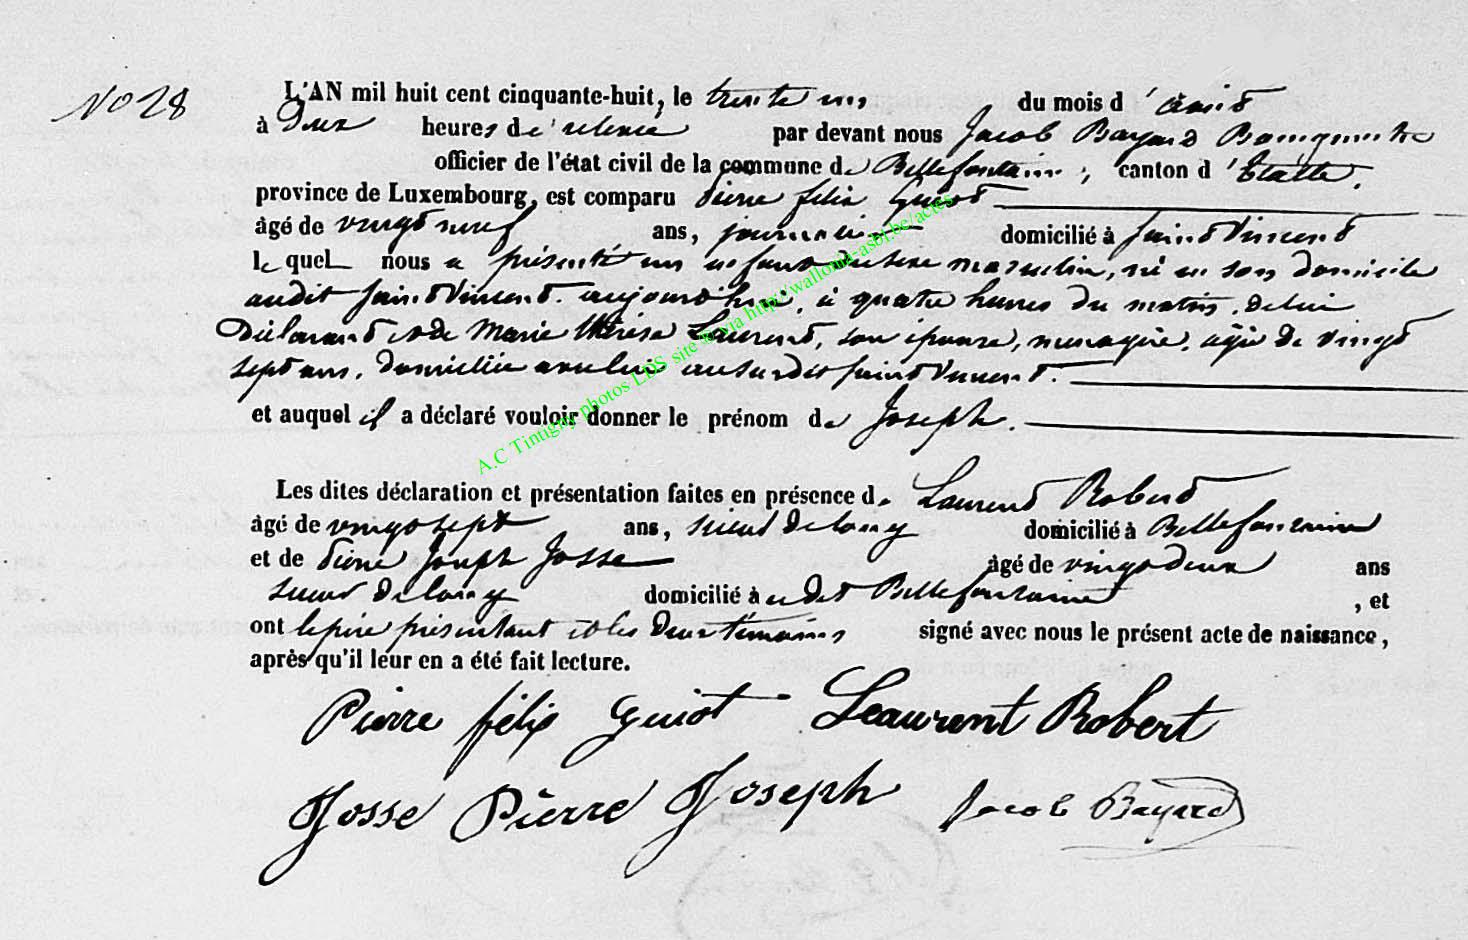 No 28
L'AN mil huit cent cinquante-huit, le trente un du mois d'août
à Deux heures de relevée par devant nous Jacob Bayard Bourgmestre
officier de l'état civil de la commune de Bellefontaine, canton d'Etalle,
province de Luxembourg, est comparu Pierre félix Guiot
âgé de vingt neuf ans, journalier domicilié à Saint Vincent
lequel nous a présenté un enfant du sexe masculin, né en son domicile
audit Saint Vincent aujourd'hui, à quatre heures du matin, de lui
Déclarant et de Marie thérèse Laurent, son épouse, menagère, âgée de vingt
sept ans, domiciliée avec lui au susdit Saint Vincent.
et auquel il a déclaré vouloir donner le prénom de Joseph.
Les dites déclaration et présentation faites en présence de Laurent Robert
âgé de vingt sept ans, scieur de long domicilié à Bellefontaine
et de Pierre Joseph Josse âgé de vingt deux ans
scieur de long domicilié à udit Bellefontaine, et
ont le père présentant et les deux témoins signé avec nous le présent acte de naissance,
après qu'il leur en a été fait lecture.
Pierre félix guiot Leaurent Robert
Josse Pierre Joseph Jacob Bayard
A.C Tintigny photos LDS site via http://wallonia-asbl.be/actes